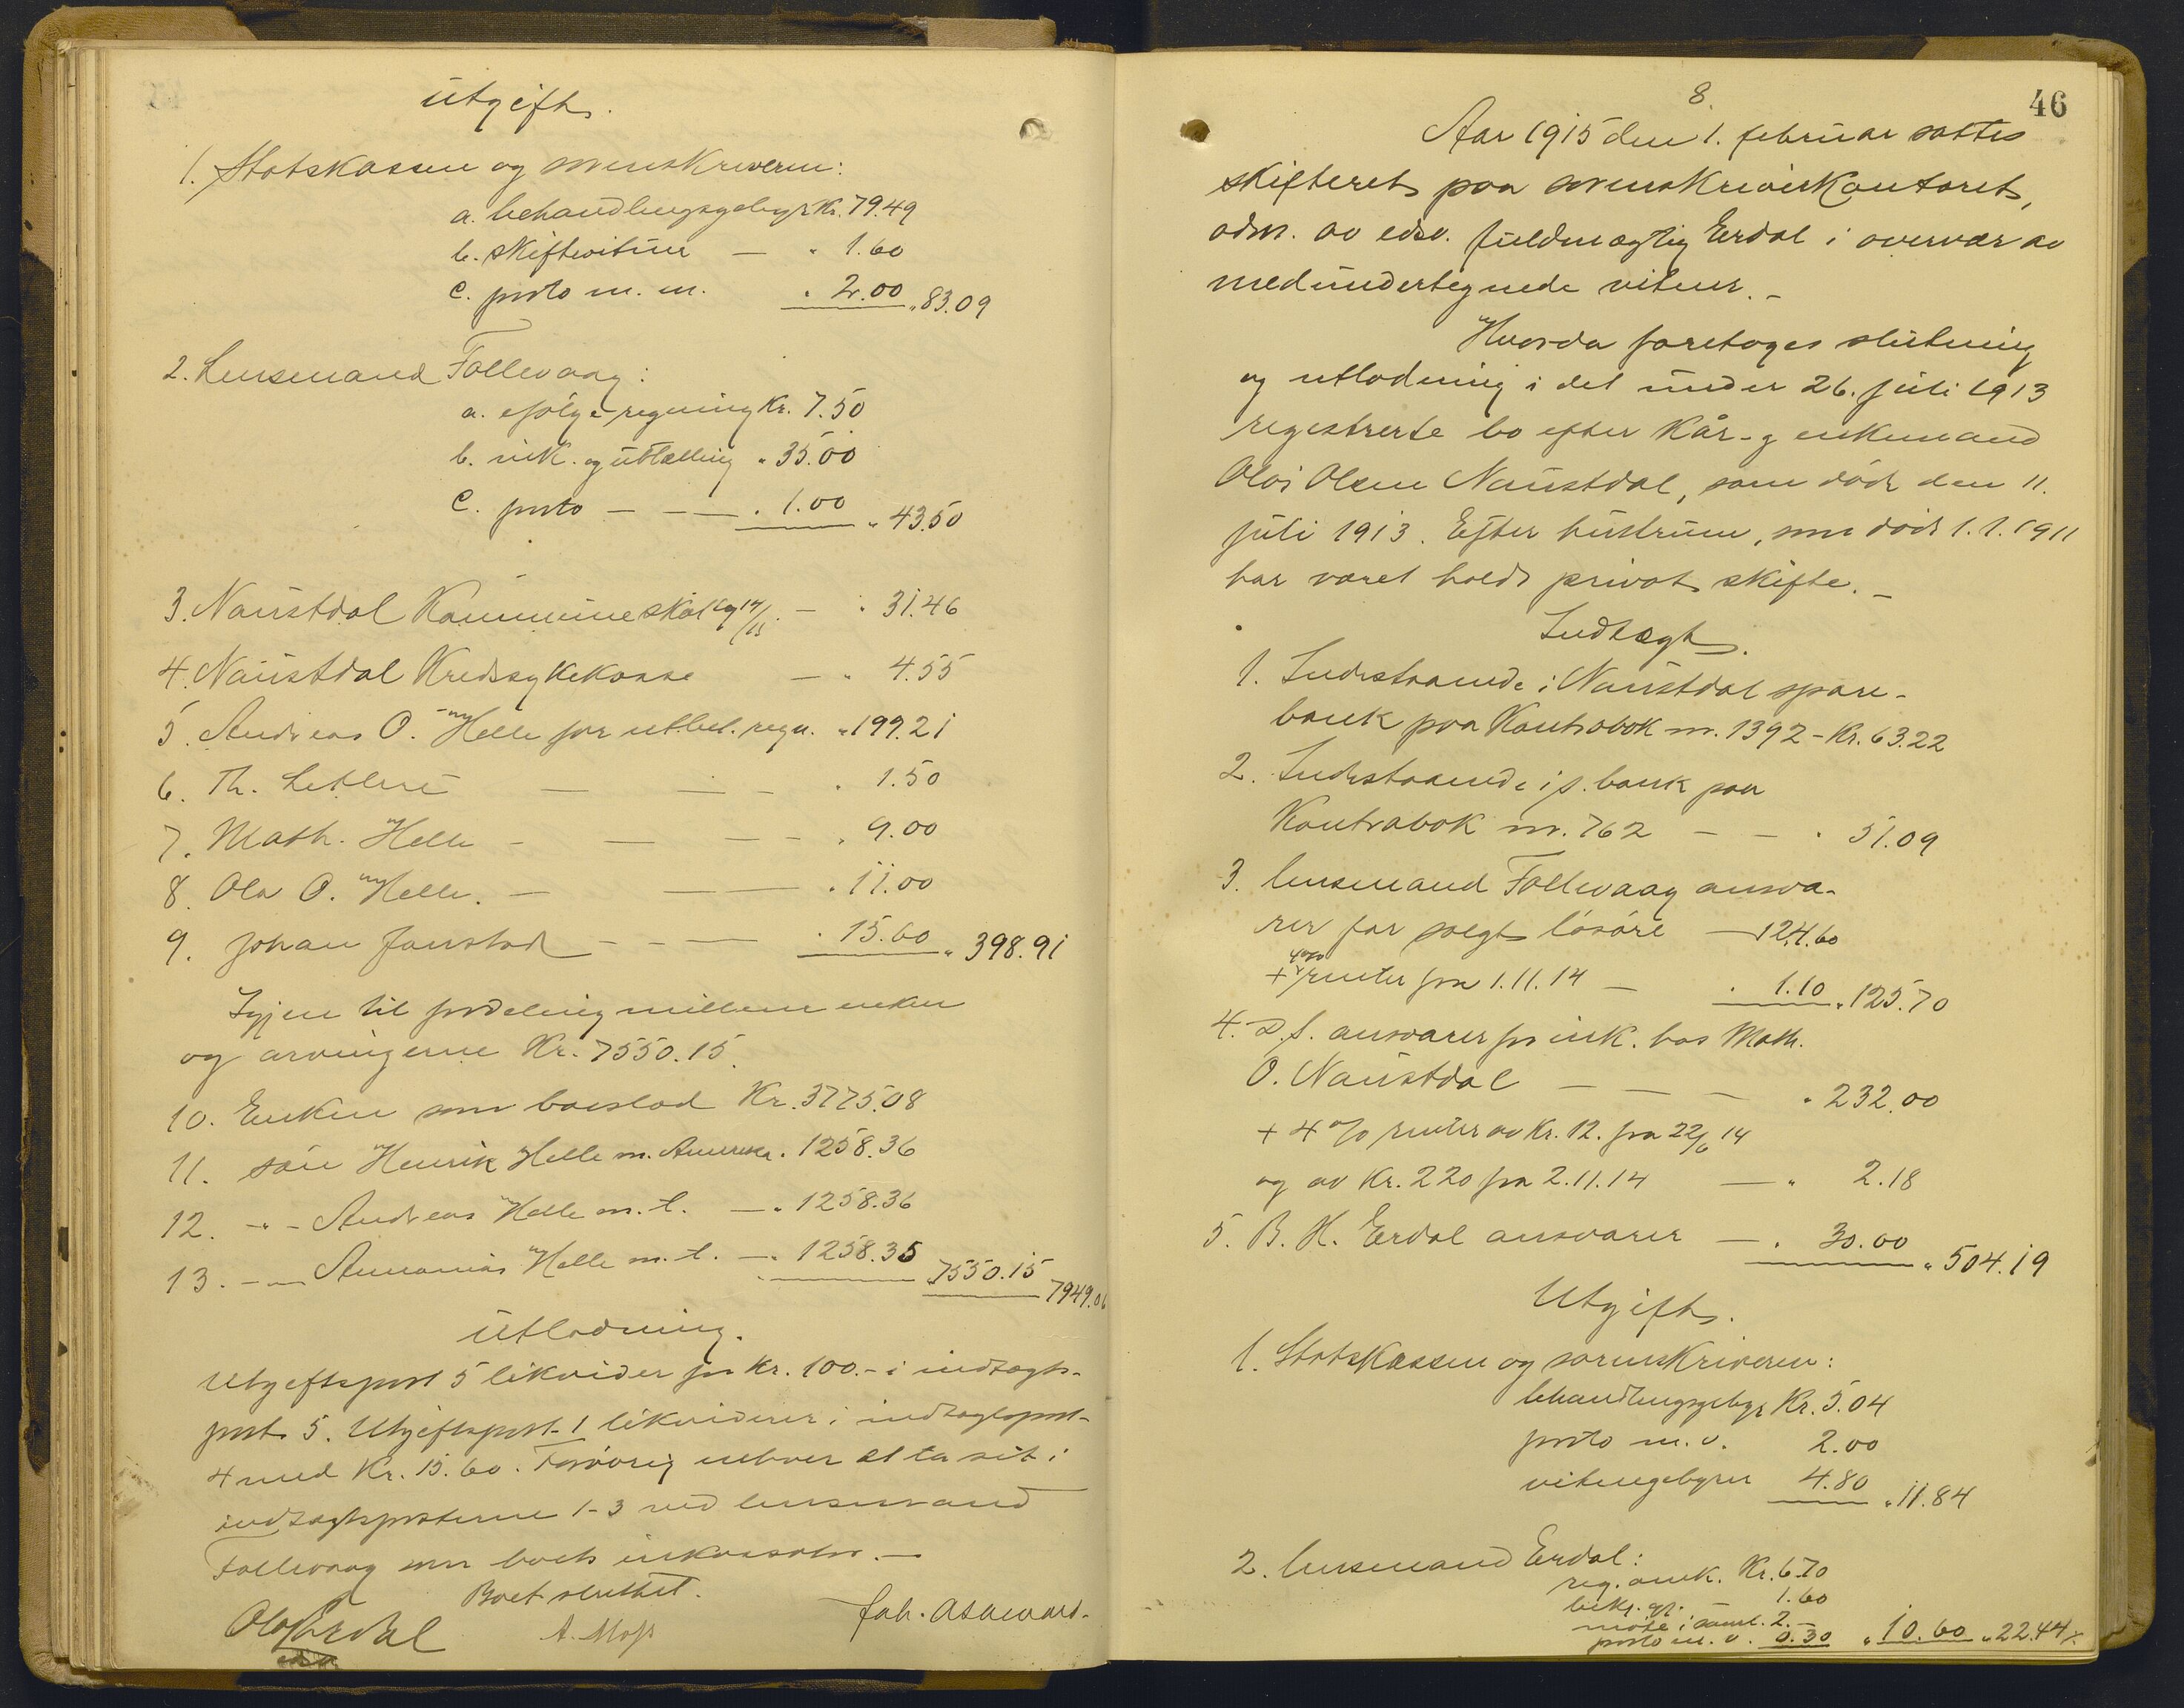 Utgift.
1. Statskassen og sorenskriveren:
a. behandlingsgebyr Kr. 79.49
b. skiftevitner — " 1.60
c. porto m. m. " 2.00 " 83.09
2. Lensmand Follevaag:
a. efølge regning Kr. 7.50
b. ink. og uttælling " 35.00
c. porto — — — " 1.00 " 43.50
3. Naustdal Kommuneskat 14/15 — " 31.46
4. Naustdal Kredssykekasse — " 4.55
5. Andreas O. Helle for utbet. regn. " 199.21
6. Th. — — — " 1.50
7. Math. Helle — — — — " 9.00
8. Ola O. Helle. — — — " 11.00
9. Johan — — — " 15.60 " 398.91
Igjen til fordeling mellem enken
og arvingerne Kr. 7550.15.
10. Enken som boeslod Kr. 3775.08
11. søn Henrik Helle m. Amerika " 1258.36
12. -"- Andreas Helle m. l. — " 1258.36
13. -"- Annanias Helle m. l. — " 1258.35 " 7550.15 7949.06
Utlodning.
Utgiftspost 5 likvider for Kr. 100.- i indtægts-
post 5. Utgiftspost 1 likviderer i indtægtspost
4 med Kr. 15.60. Forøvrig enhver at ta sit i
indtægtsposterne 1-3 ved lensmand
Follevaag som boets inkassator. —
Boet sluttet.
Olaf Erdal A. Moss Joh. Asawards.
46
8.
Aar 1915 den 1. februar sattes
skifteret paa sorenskriverkontoret,
adm. av edsv. fuldmægtig Erdal i overvær av
medundertegnede vitner. —
Hvorda foretoges slutning
og utlodning i det under 26. juli 1913
registrerte bo efter kår-g enkemand
Ole Olsen Naustdal, som døde den 11.
juli 1913. Efter hustruen, som døde 1.1.1911
har været holdt privat skifte. —
Indtægt.
1. Indestaaende i Naustdal spare-
bank paa Kontrabok nr. 1392 - Kr. 63.22
2. Indestaaende i s. bank paa
Kontrabok nr. 762 — — " 51.09
3. lensmand Follevaag ansva-
rer for solgt løsøre — 124.60
+ 4% renter fra 1.11.14 — " 1.10 " 125.70
4. D. s. ansvarer for ink. hos Math.
O. Naustdal — — — " 232.00
+ 4 % renter av Kr. 12. fra 22/6 14
og av Kr. 220 fra 2.11.14 — " 2.18
5. B. H. Erdal ansvarer — " 30.00 " 504.19
Utgift.
1. Statskassen og sorenskriveren:
behandlingsgebyr Kr. 5.04
porto m. v. 2.00
vitnegebyrer 4.80 " 11.84
2. lensmand Erdal:
reg. omk. Kr. 6.70
bekj. gj. — 1.60
møte i saml. 2.—
porto m. v. 0.30 " 10.60 " 22.44